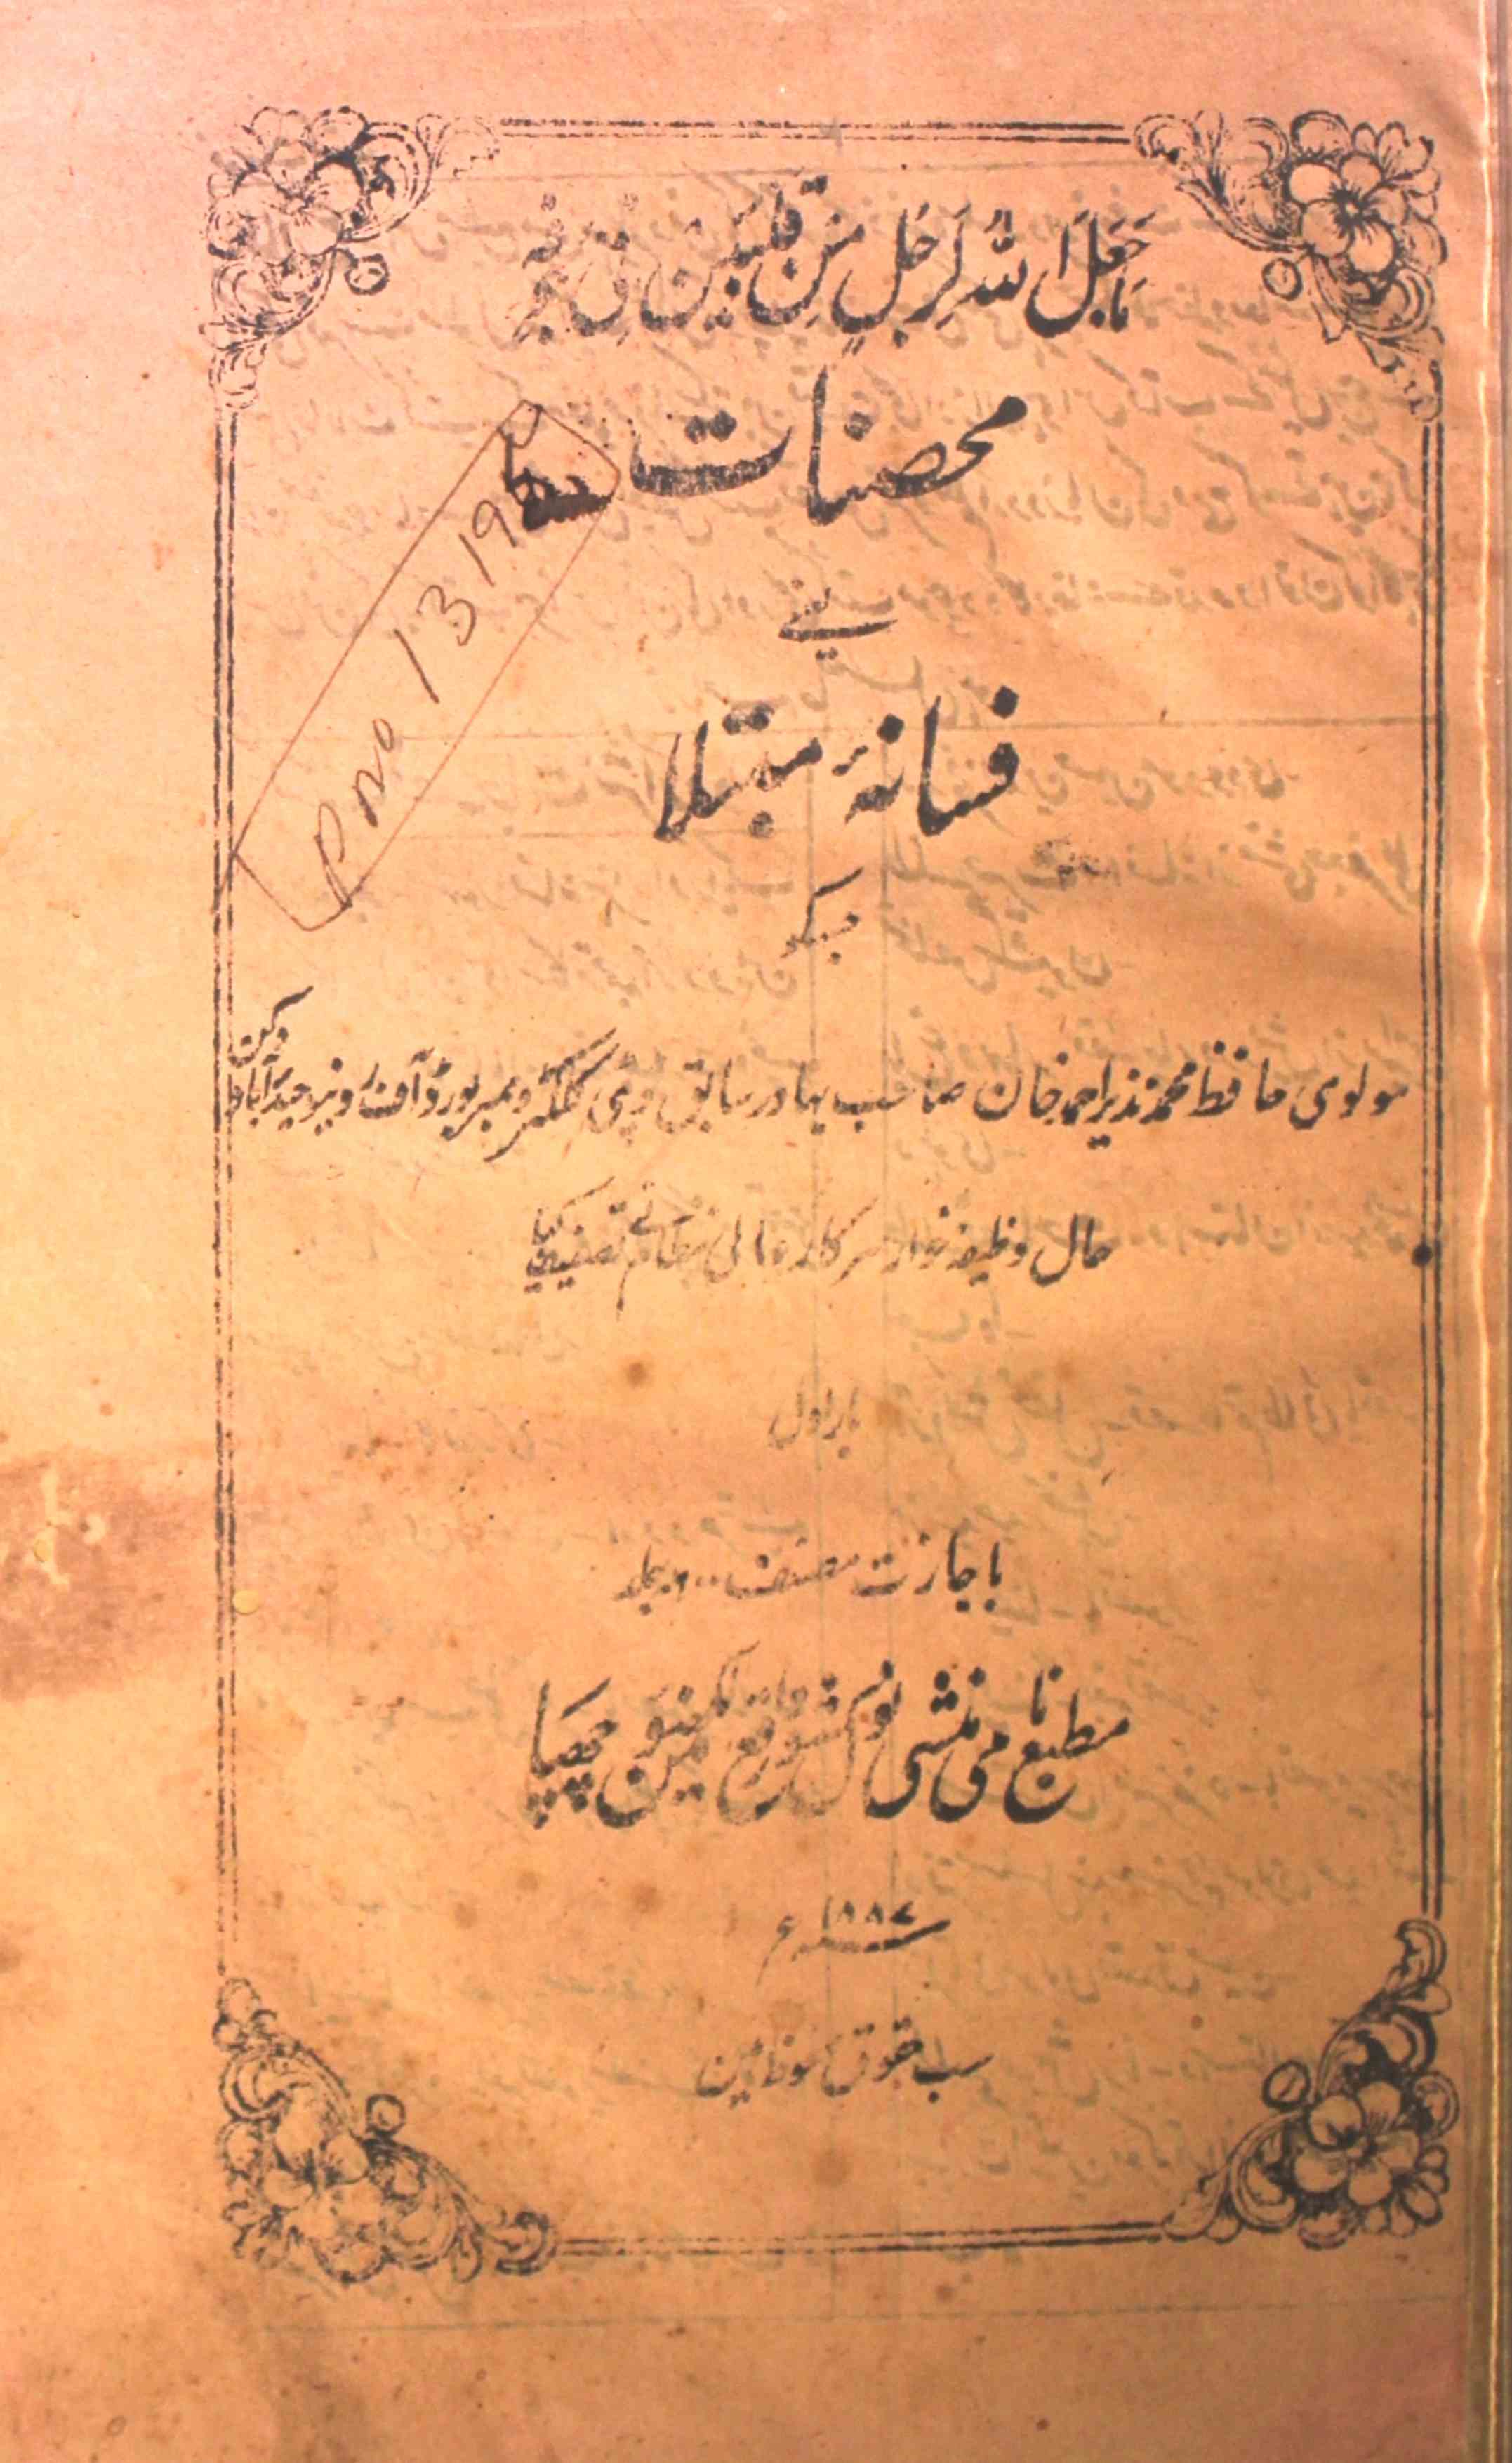 مَا جَعَلَ اللهُ لِرَجُلٍ مِنْ قَلْبَيْنِ فِي جَوْفِهِ
محصنات
Pno 1319
یعنے
فسانۂ مبتلا
جسکو
مولوی حافظ محمد نذیر احمد خان صاحب بہادر سابق ڈپٹی کلکٹر و ممبر بورڈ آف ریونیو حیدرآباد دکن
حال وظیفہ خوار سرکار عالی نظام نے تصنیف کیا
بار اول
باجازت مصنف جلد
مطبع نامی منشی نولکشور واقع لکھنؤ مین چھپا
۱۸۸۷ء
سب حقوق محفوظ ہین